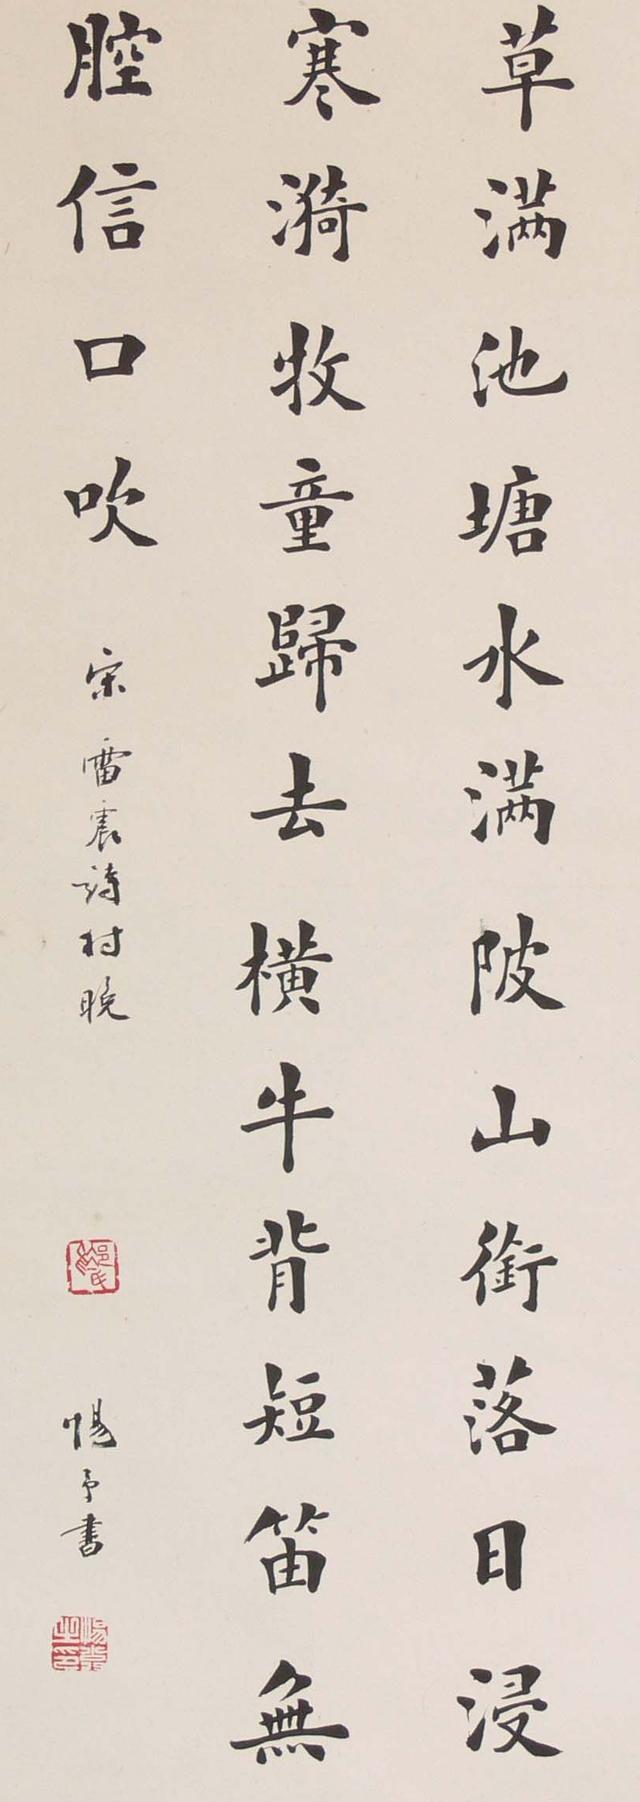 草满池塘水满陂山銜落日浸
寒漪牧童歸去橫牛背短笛無
腔信口吹
宋雷震詩村晚
楊予書